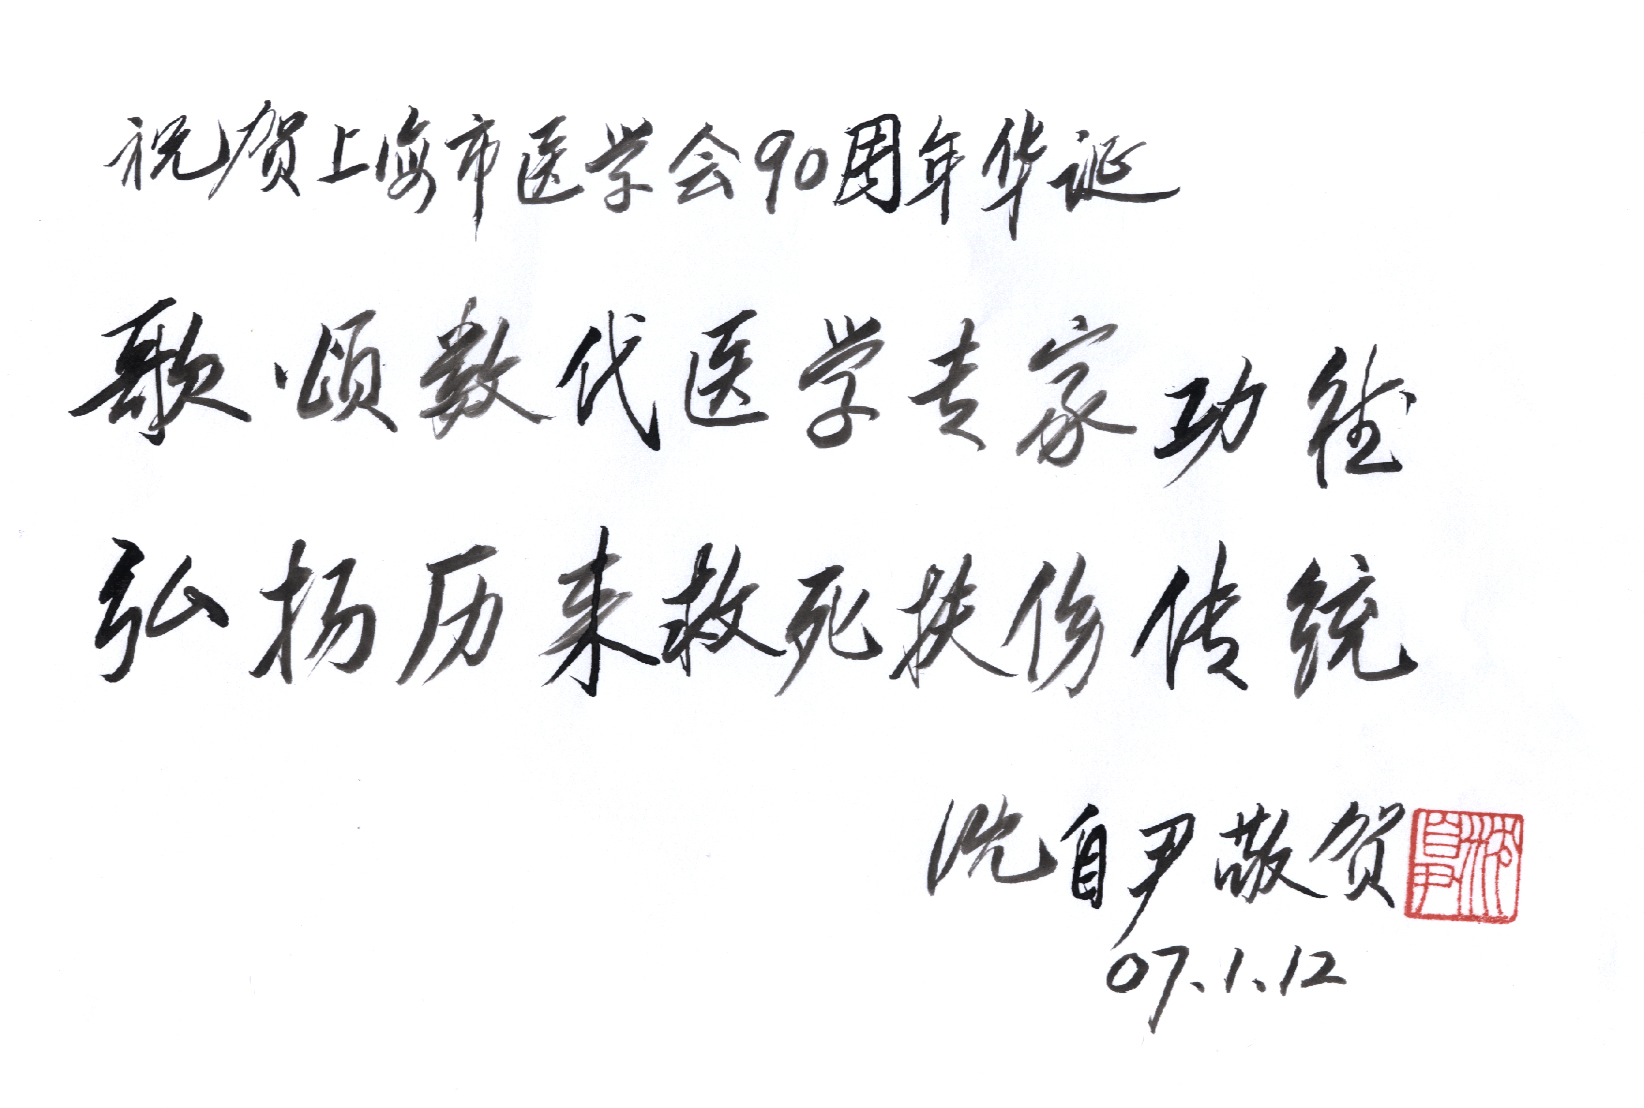 祝贺上海市医学会90周年华诞
歌颂数代医学专家功德
弘扬历来救死扶伤传统
沈自尹敬贺
沈自尹
07.1.12